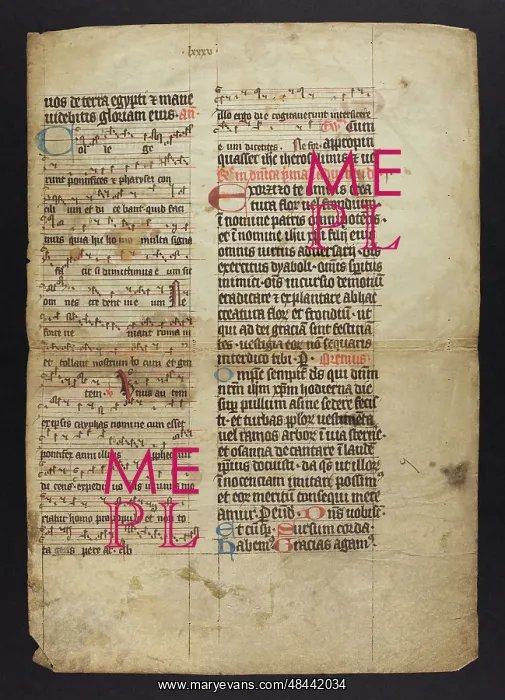 lxxxv
uos de terra egypti ⁊ mane
uidebitis gloriam eius. an
Col le ge
runt pontifices ⁊ pharysei con
cili um et di ce bant quid faci
mus quia hic ho mo multa signa
fa cit si dimittimus e um sic
om nes cre dent in e um Ne
forte ue niant roma ni
et tollant nostrum lo cum et gen
tem. Vnus au tem
ex ipsis cayphas nomine cum esset
pontifex anni illius
di cens expedit uo bis ut unus mo
riatur homo pro populo et non to
ta gens pere at. ab
illo ergo die cogitauerunt interficere
Cum
e um dicentes. Ne for. appropin
quasset ihc
Exorzizo te omnis crea
tura flor uel frondium
ī nomine patris omnipotētis.
et ī nomine ihu xpi filii eius
omnis uirtus aduersarii. ois
exercitus dyaboli. omīs spiritus
inimici. oīs incursio demonū
eradicare ⁊ explantare ab hac
creatura flor et frondiū. ut
qui ad dei graciā
tes. uestigia eor nō sequaris
interdico tibi. P. Oremus.
Ompīe sempitne ds qui dnm
nrm ihm xpm hodierna die
sup pullum asine sedere fecis
ti. et turbas pplor uestimēta
uel ramos arbor ī uia sterne
et osanna decantare ī laude
ipius docuisti. da qs ut illor
īnocenciam imitari possim
et eor meritū consequi mere
amur. P eūd. Dns uobisc
Et cū sp. Sursum corda.
Habem Gracias agam
ME
PL
ME
PL
www.maryevans.com/48442034